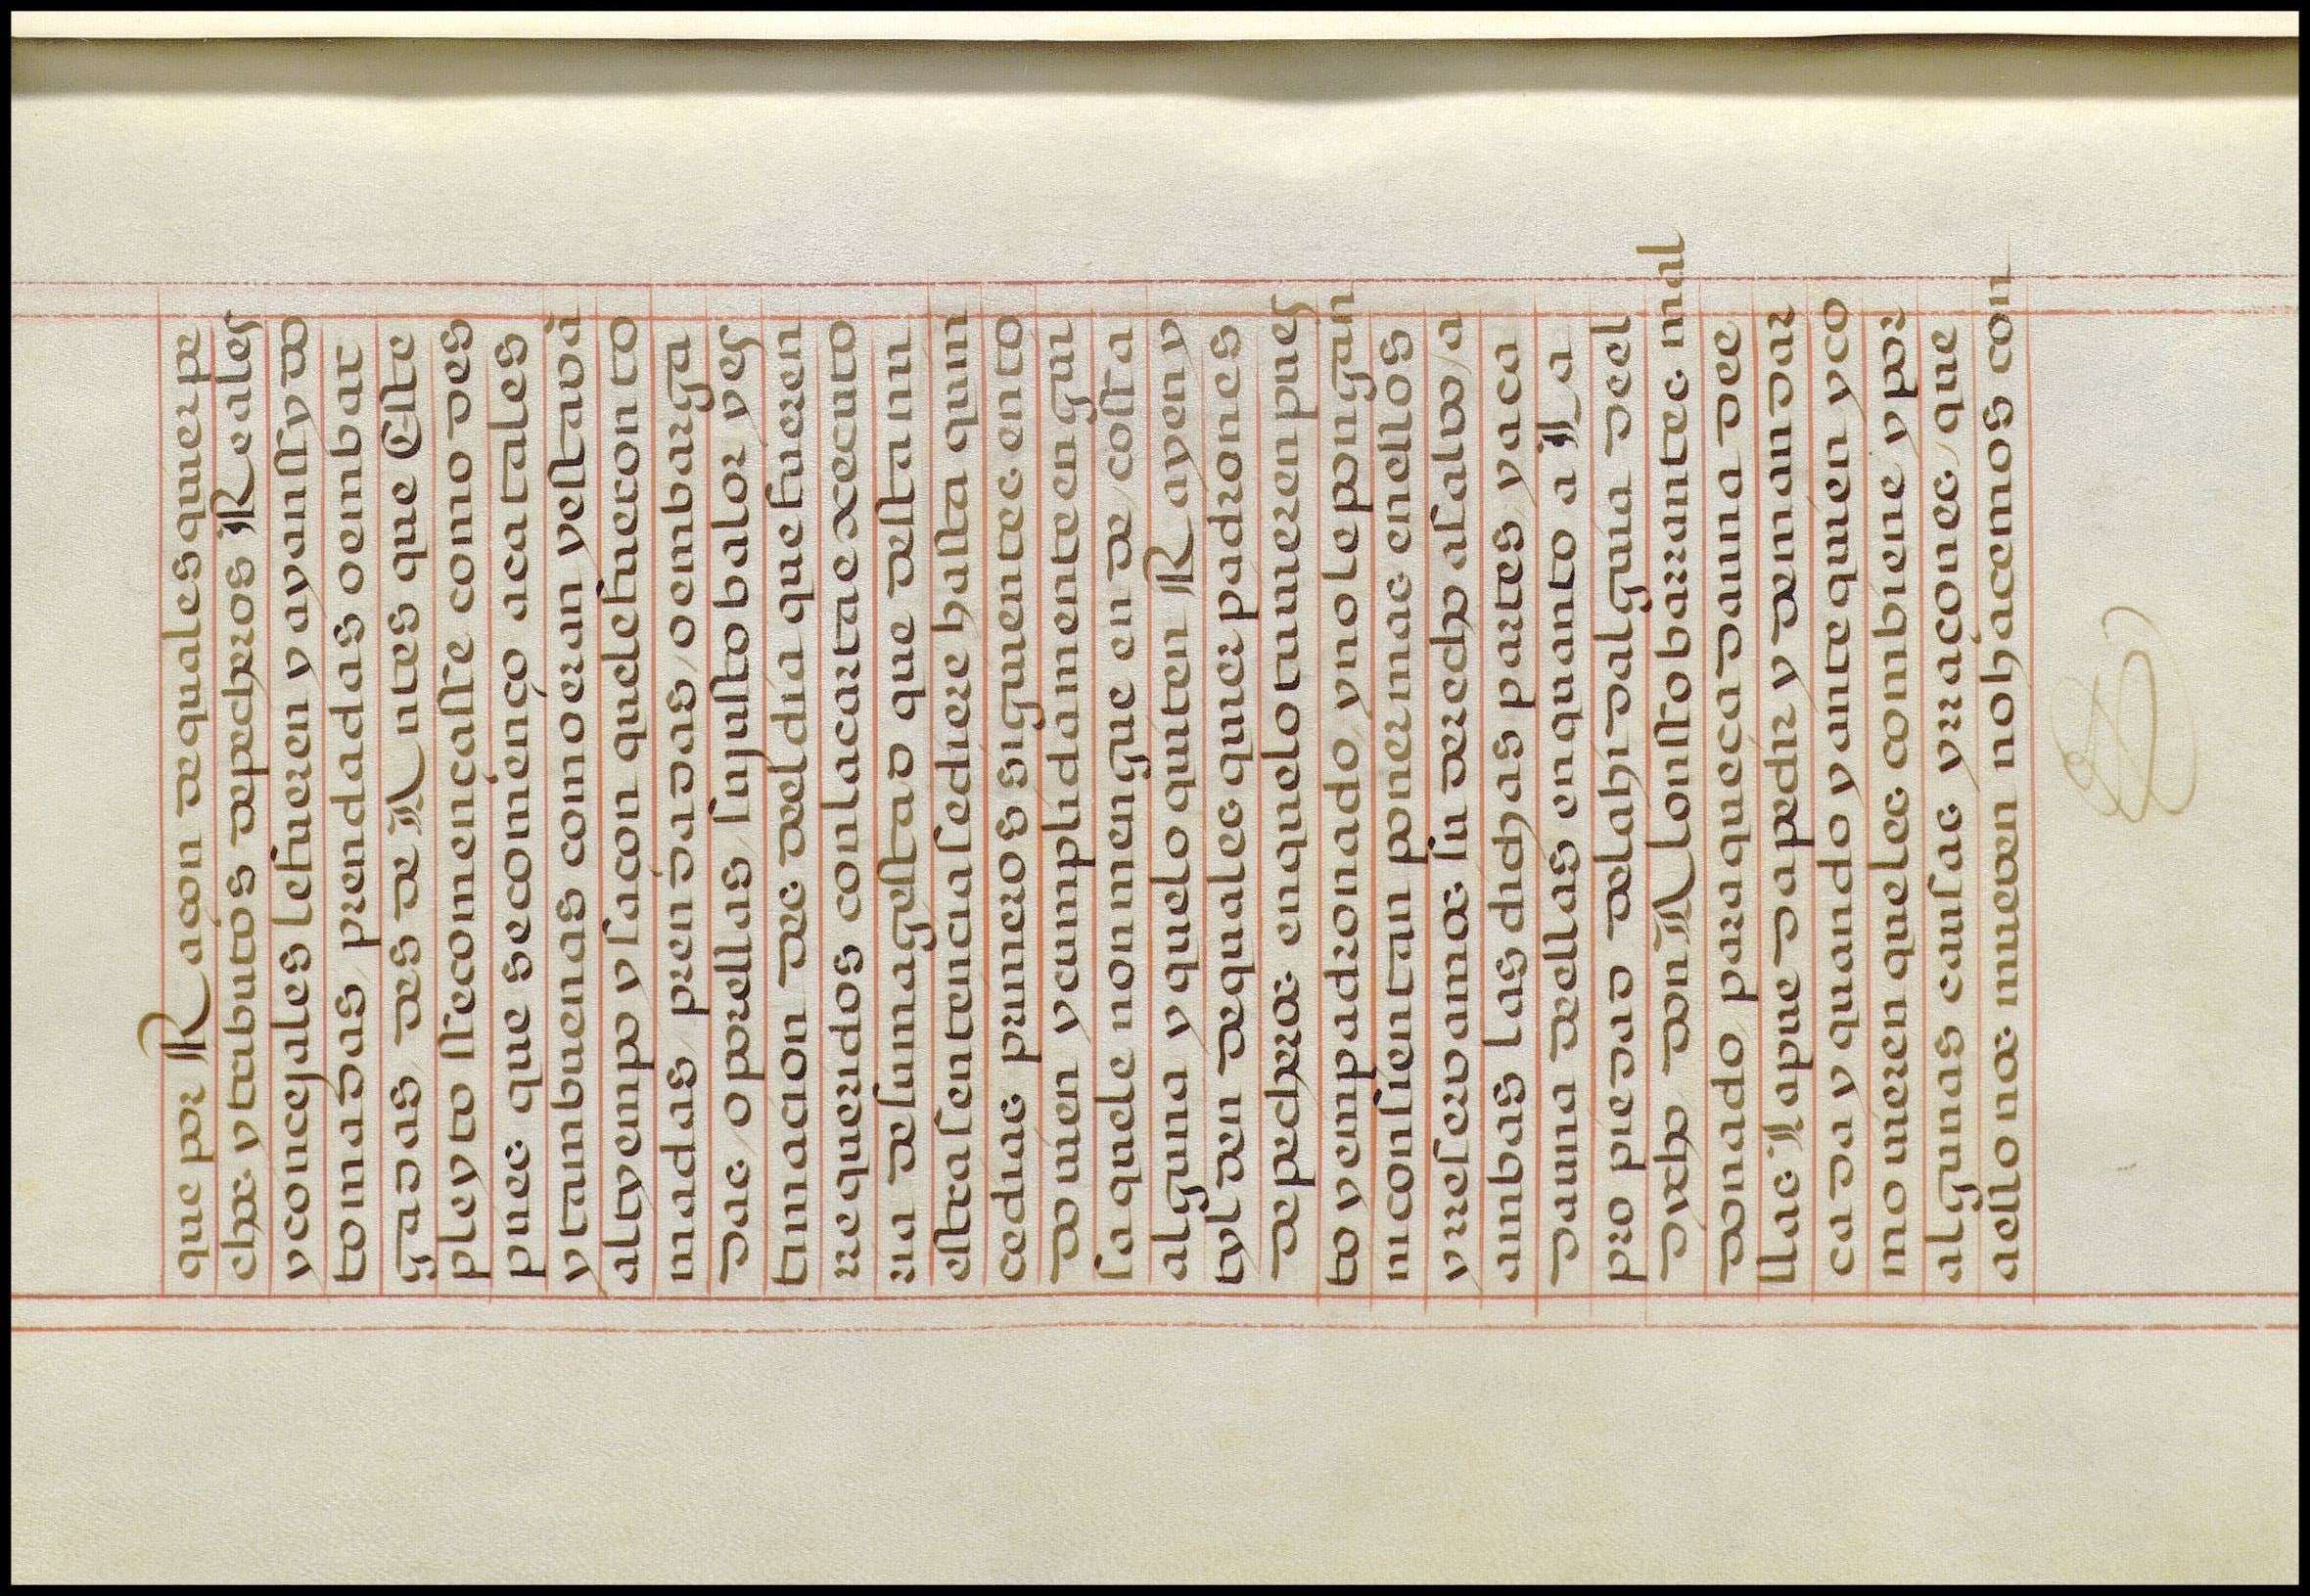 que por Raçon de quales quier pe
chos y tributos de pecheros Reales
y conçejales le fueren y ayan ssydo
tomadas prendadas o embar
gadas des de Antes que Este
pleyto sse començasse como des
pues que se començo aca tales
y tam buenas como eran y estavā
al tyempo y saçon que le fueron to
madas prendadas o embarga
das o por ellas su justo balor y es
timaçion des del dia que fueren
rrequeridos con la carta executo
ria de su magestad que desta nu
estra sentençia se diere hasta quin
çe dias primeros siguientes en to
do vien y cumplidamente en gui
sa que le non mengue en de cossa
alguna y que lo quiten Rayen y
tylden de quales quier padrones
de pecheros en que lo tuvieren pues
to y empadronado y no le pongan
ni consientan poner mas en ellos
y rreservamos su derecho a salvo a
ambas las dichas partes y a ca
da una dellas en quanto a La
propiedad de la hidalguia del
dicho don Alonsso barrantes mal
donado para que cada uno de e
llas La pueda pedir y demandar
cada y quando y ante quien y co
mo vieren que les combiene y por
algunas causas y rraçones que
a ello nos mueven no haçemos con